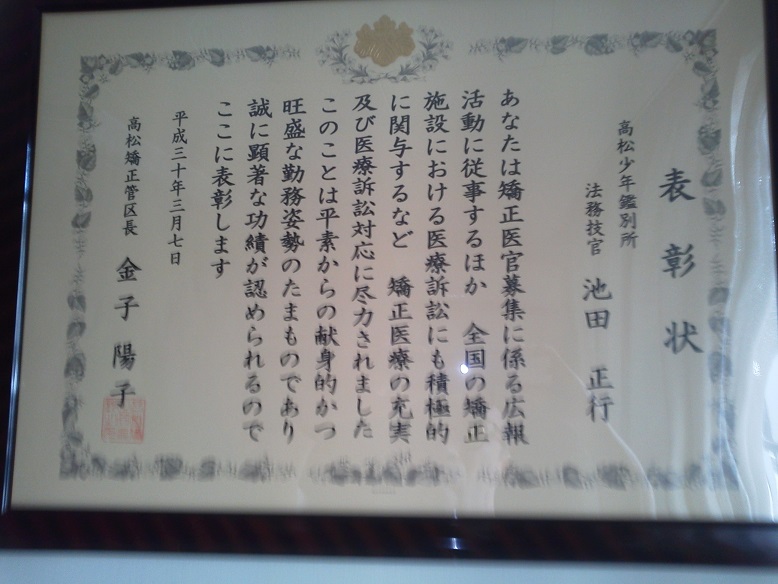 表彰状
高松少年鑑別所
法務技官 池田 正行
あなたは矯正医官募集に係る広報
活動に従事するほか 全国の矯正
施設における医療訴訟にも積極的
に関与するなど 矯正医療の充実
及び医療訴訟対応に尽力されました
このことは平素からの献身的かつ
旺盛な勤務姿勢のたまものであり
誠に顕著な功績が認められるので
ここに表彰します
平成三十年三月七日
高松矯正管区長 金子陽子